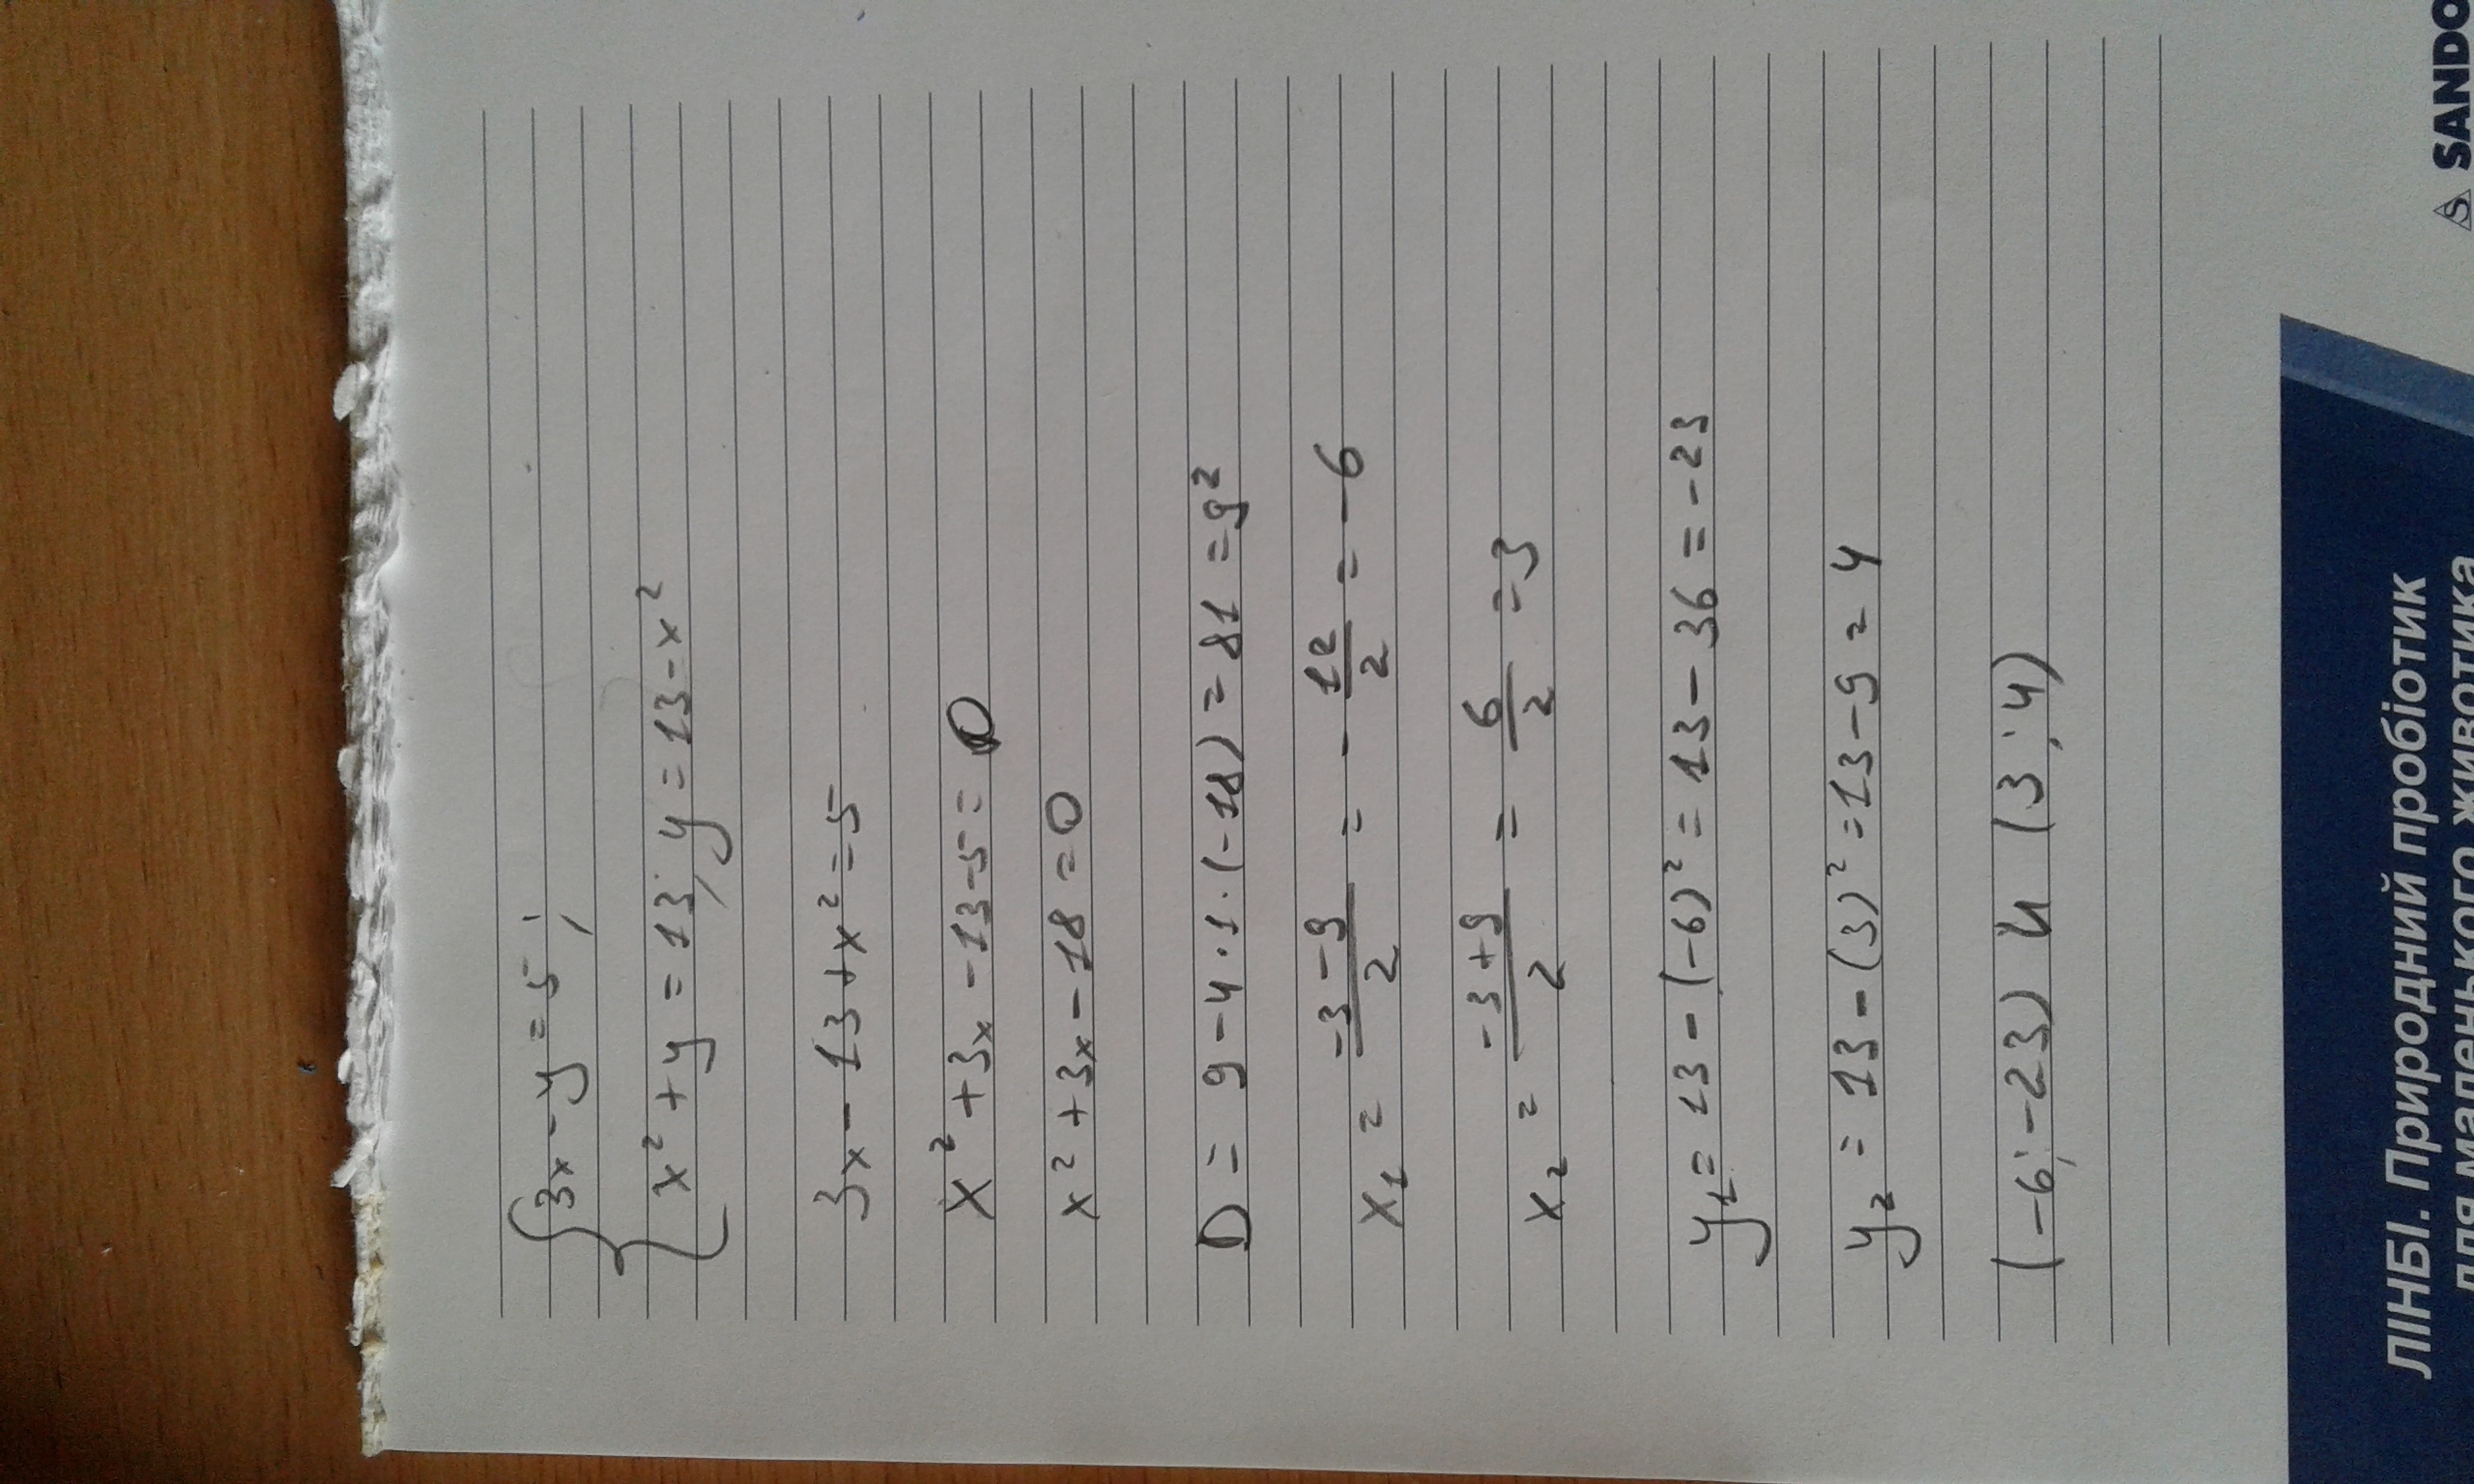 {3x - y = 5;
x² + y = 13; y = 13 - x²
3x - 13 + x² = 5
x² + 3x - 13 - 5 = 0
x² + 3x - 18 = 0
D = 9 - 4 · 1 · (-18) = 81 = 9²
x₁ = (-3 - 9)/2 = -12/2 = -6
x₂ = (-3 + 9)/2 = 6/2 = 3
y₁ = 13 - (-6)² = 13 - 36 = -23
y₂ = 13 - (3)² = 13 - 9 = 4
(-6; -23) и (3; 4)
ЛІНБІ. Природний пробіотик
для маленького животика
SANDO